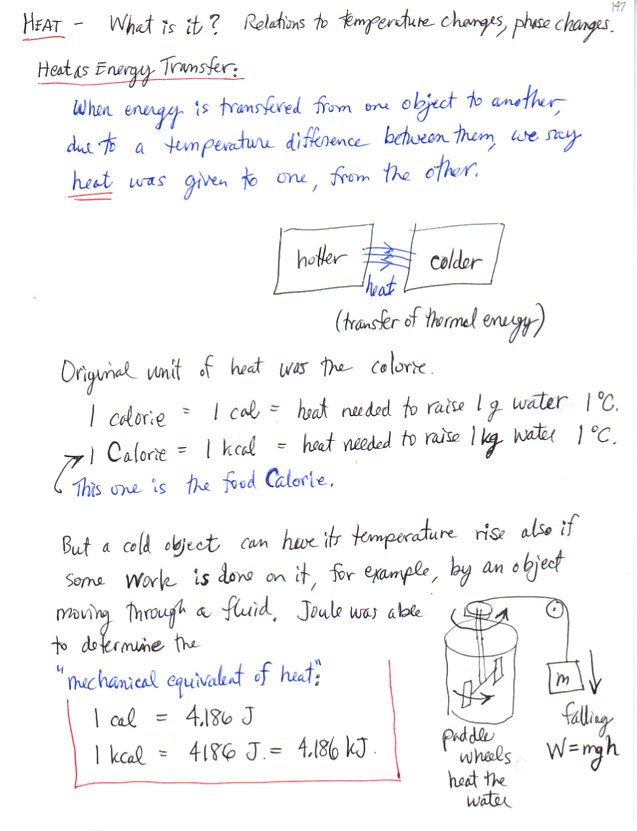 147
HEAT - What is it? Relations to temperature changes, phase changes.
Heat as Energy Transfer:
When energy is transfered from one object to another,
due to a temperature difference between them, we say
heat was given to one, from the other.
hotter
colder
heat
(transfer of thermal energy)
Original unit of heat was the calorie.
1 calorie = 1 cal = heat needed to raise 1 g water 1°C.
1 Calorie = 1 kcal = heat needed to raise 1 kg water 1°C.
This one is the food Calorie.
But a cold object can have its temperature rise also if
some work is done on it, for example, by an object
moving through a fluid. Joule was able
to determine the
"mechanical equivalent of heat":
1 cal = 4.186 J
1 kcal = 4186 J. = 4.186 kJ.
m
falling
W=mgh
paddle
wheels
heat the
water